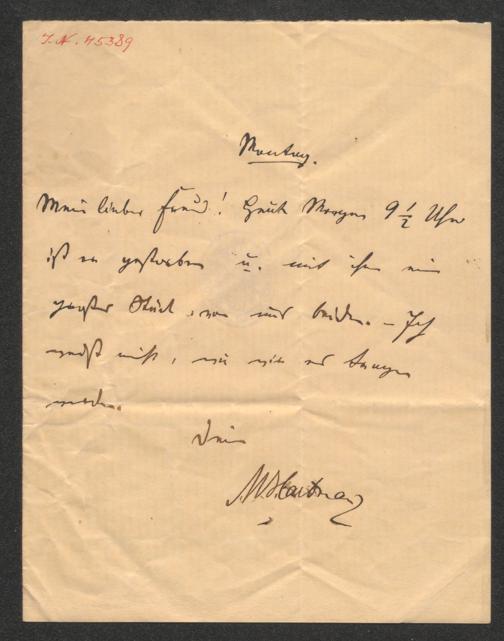 I. N. 45389
Montag.
Mein lieber Freund! Heute Morgen 9 1/2 Uhr
ist er gestorben u. mit ihm ein
großes Stück von uns beiden. – Ich
weiß nicht, wie wir es tragen
werden.
Dein